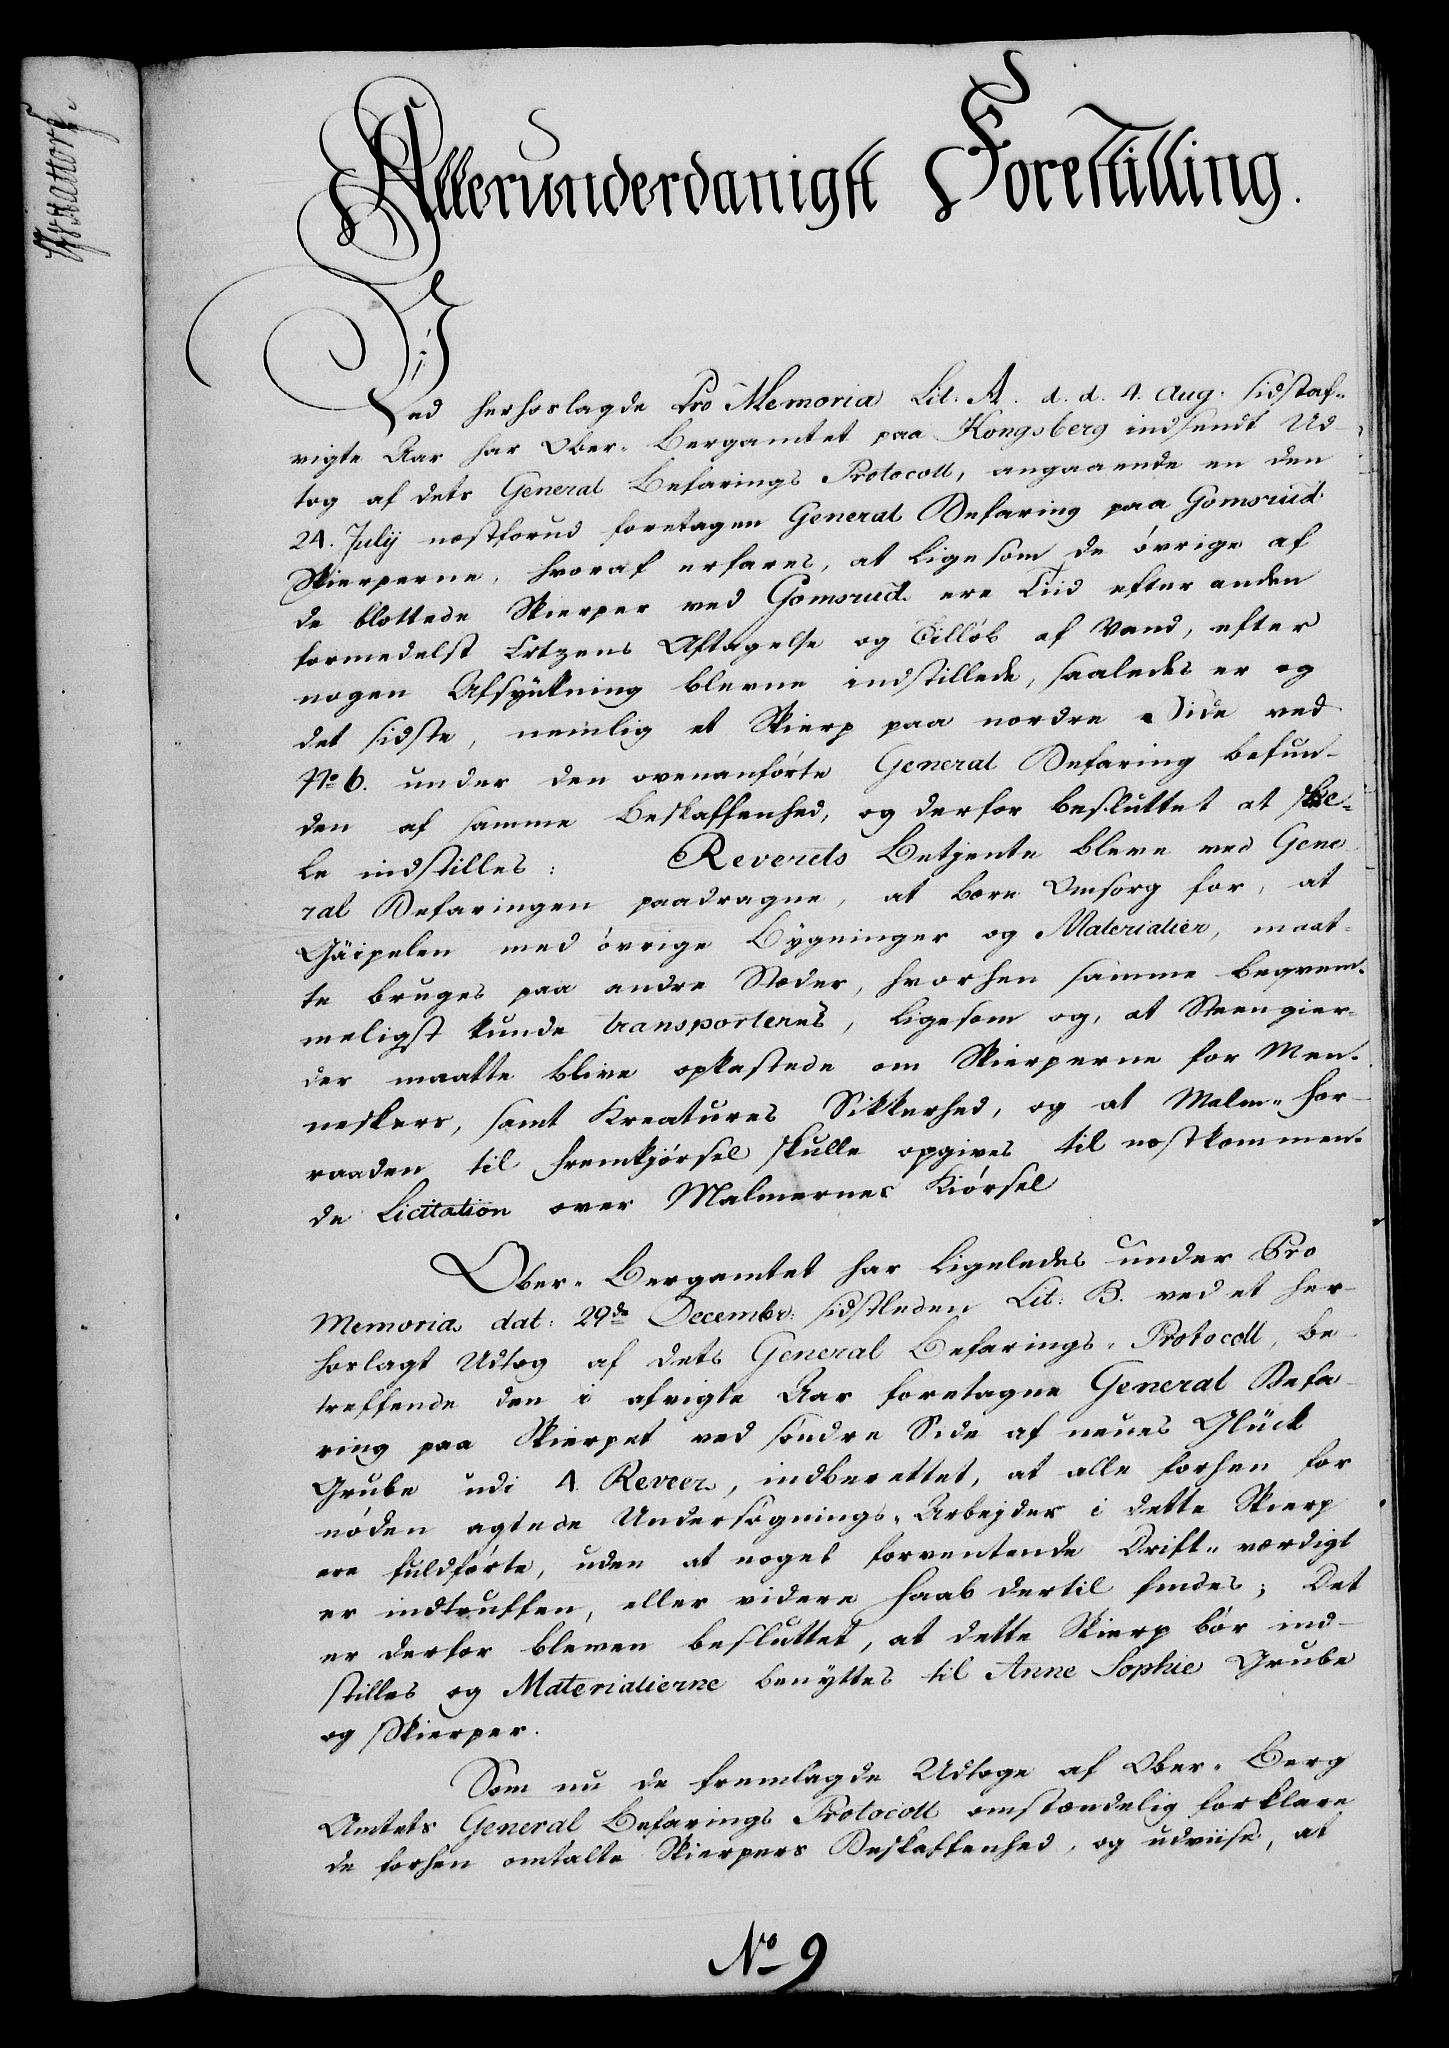 Allerunderdanigst Forestilling.
Ved herhoslagde Pro Memoria Lit. A. d. d. 4. Aug. sidstaf-
vigte Aar har Ober-Bergamtet paa Kongsberg indsendt Ud-
tog af dets General Befarings Protocoll, angaaende en den
24. Julij næstforud foretagen General Befaring paa Gomsrud
Skierperne, hvoraf erfares, at ligesom de övrige af
de blottede Skierper ved Gomsrud ere Tiid efter anden
formedelst Ertzens Aftagelse og Tillöb af Vand, efter
nogen Afsynkning blevne indstillede, saaledes er og
det sidste, nemlig et Skierp paa nordre Side ved
No 6. under den ovenanförte General Befaring befun-
den af samme Beskaffenhed, og derfor besluttet at skul-
le indstilles: Reverets Betjente bleve ved Gene
ral Befaringen paadragne, at bære Omsorg for, at
Gäipelen med övrige Bygninger og Materialier, maat-
te bruges paa andre Stæder, hvorhen samme beqvem-
meligst kunde transporteres, ligesom og, at Steengier-
der maatte blive opkastede om Skierperne for Men-
neskers, samt Kreatures Sikkerhed, og at Malm-For-
raaden til fremkjörsel skulle opgives til næstkommen-
de Licitation over Malmernes Kiörsel
Ober-Bergamtet har ligeledes under Pro
Memoria dat: 29de Decembr: sidstleden Lit: B. ved et her-
hoslagt Udtog af dets General Befarings-Protocoll, be-
treffende den i afvigte Aar foretagne General Befa-
ring paa Skierpet ved söndre Side af neues Glück
Grube udi 4. Reveer, indberettet, at alle forhen for
nöden agtede Undersögnings-Arbejder i dette Skierp
ere fuldförte, uden at noget forventende Drift-værdigt
er indtruffen, eller videre Haab dertil findes; Det
er derfor bleven besluttet, at dette Skierp bör ind-
stilles og Materialierne benyttes til Anne Sophie Grube
og Skierper.
Som nu de fremlagde Udtoge af Ober-Berg
Amtets General Befarings Protocoll omstændelig forklare
de forhen omtalte Skierpers Beskaffenhed, og udviise, at
No 9